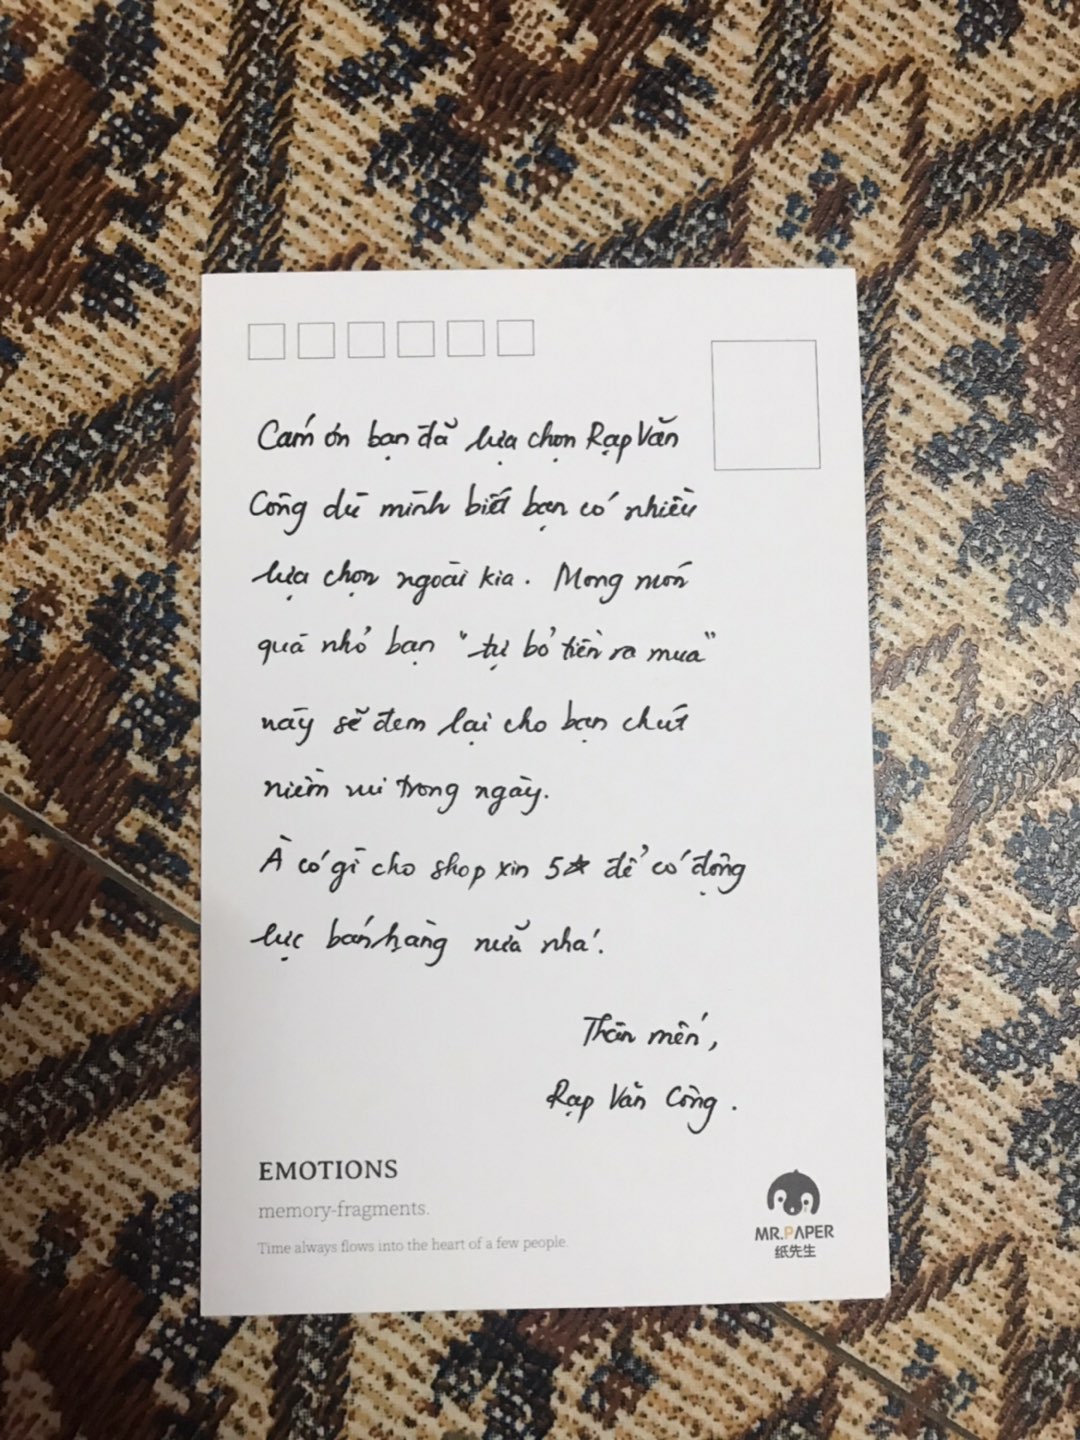 Cám ơn bạn đã lựa chọn Rạp Văn
Công dù mình biết bạn có nhiều
lựa chọn ngoài kia. Mong món
quà nhỏ bạn "tự bỏ tiền ra mua"
này sẽ đem lại cho bạn chút
niềm vui trong ngày.
À có gì cho shop xin 5☆ để có động
lực bán hàng nữa nha!
Thân mến,
Rạp Văn Công.
EMOTIONS
memory-fragments.
Time always flows into the heart of a few people.
MR.PAPER
纸先生